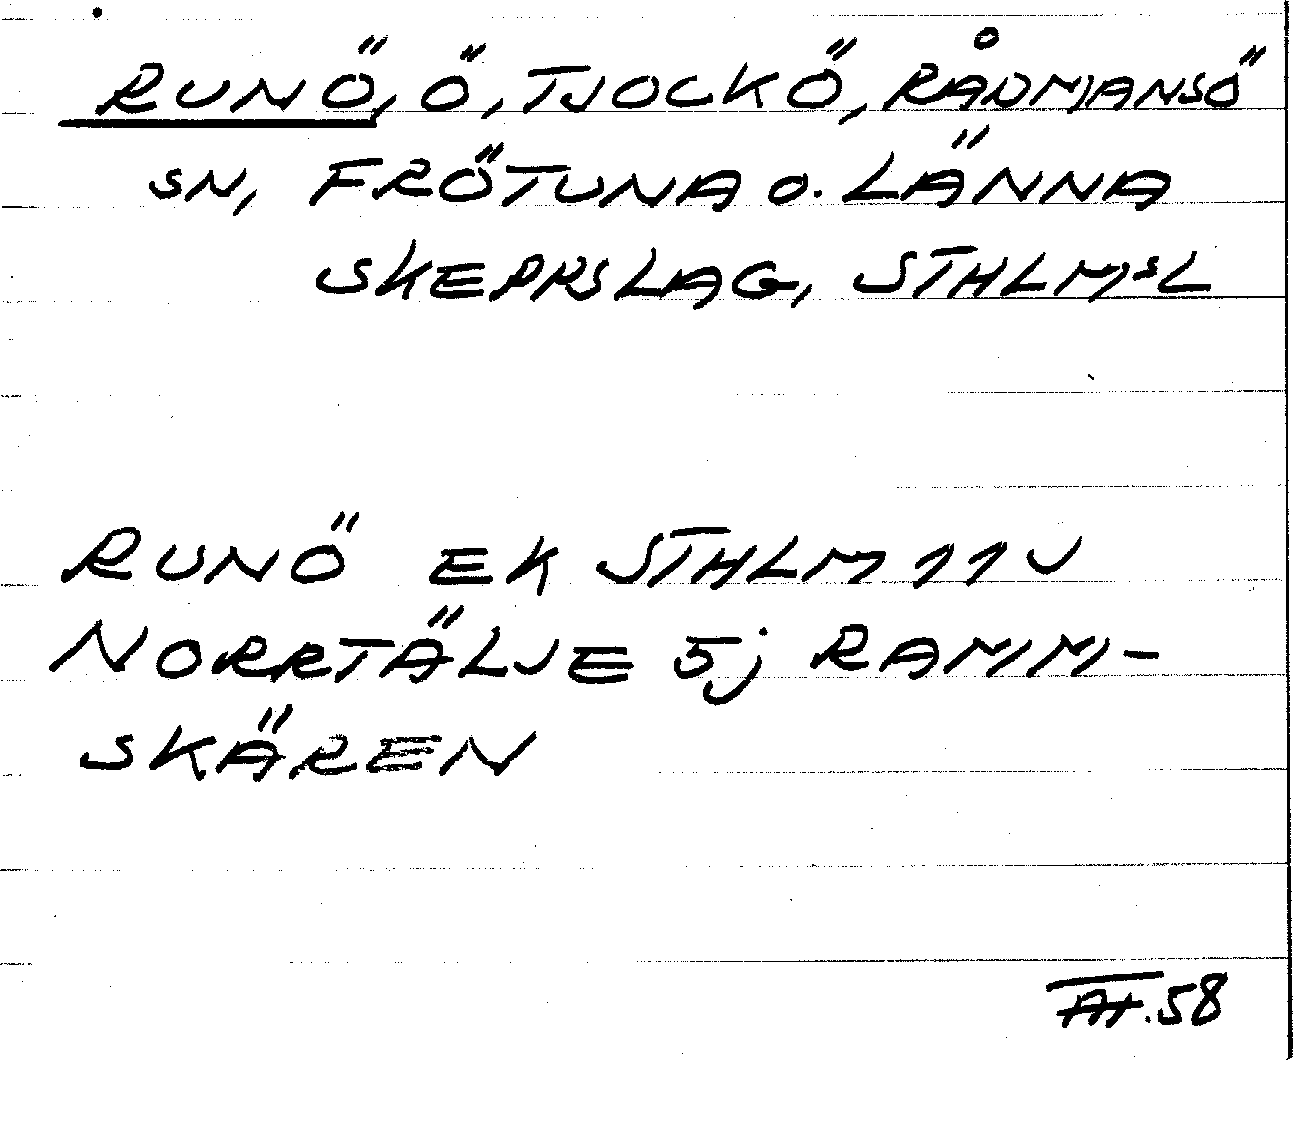 RUNÖ, Ö, TJOCKÖ, RÅDMANSÖ
SN, FRÖTUNA O. LÄNNA
SKEPPSLAG, STHLMSL
RUNÖ EK STHLM 11 V
NORRTÄLJE 5j RAMM-
SKÄREN
58